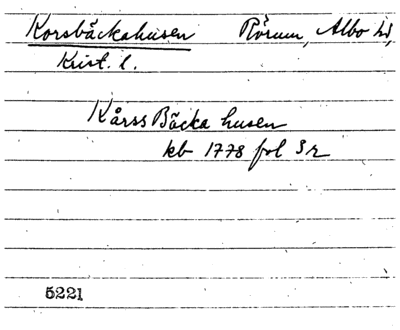 Korsbäckahusen Rörum, Albo hd,
Krist. l.
Kårss Bäcka husen
kb 1778 fol 3 r
5221